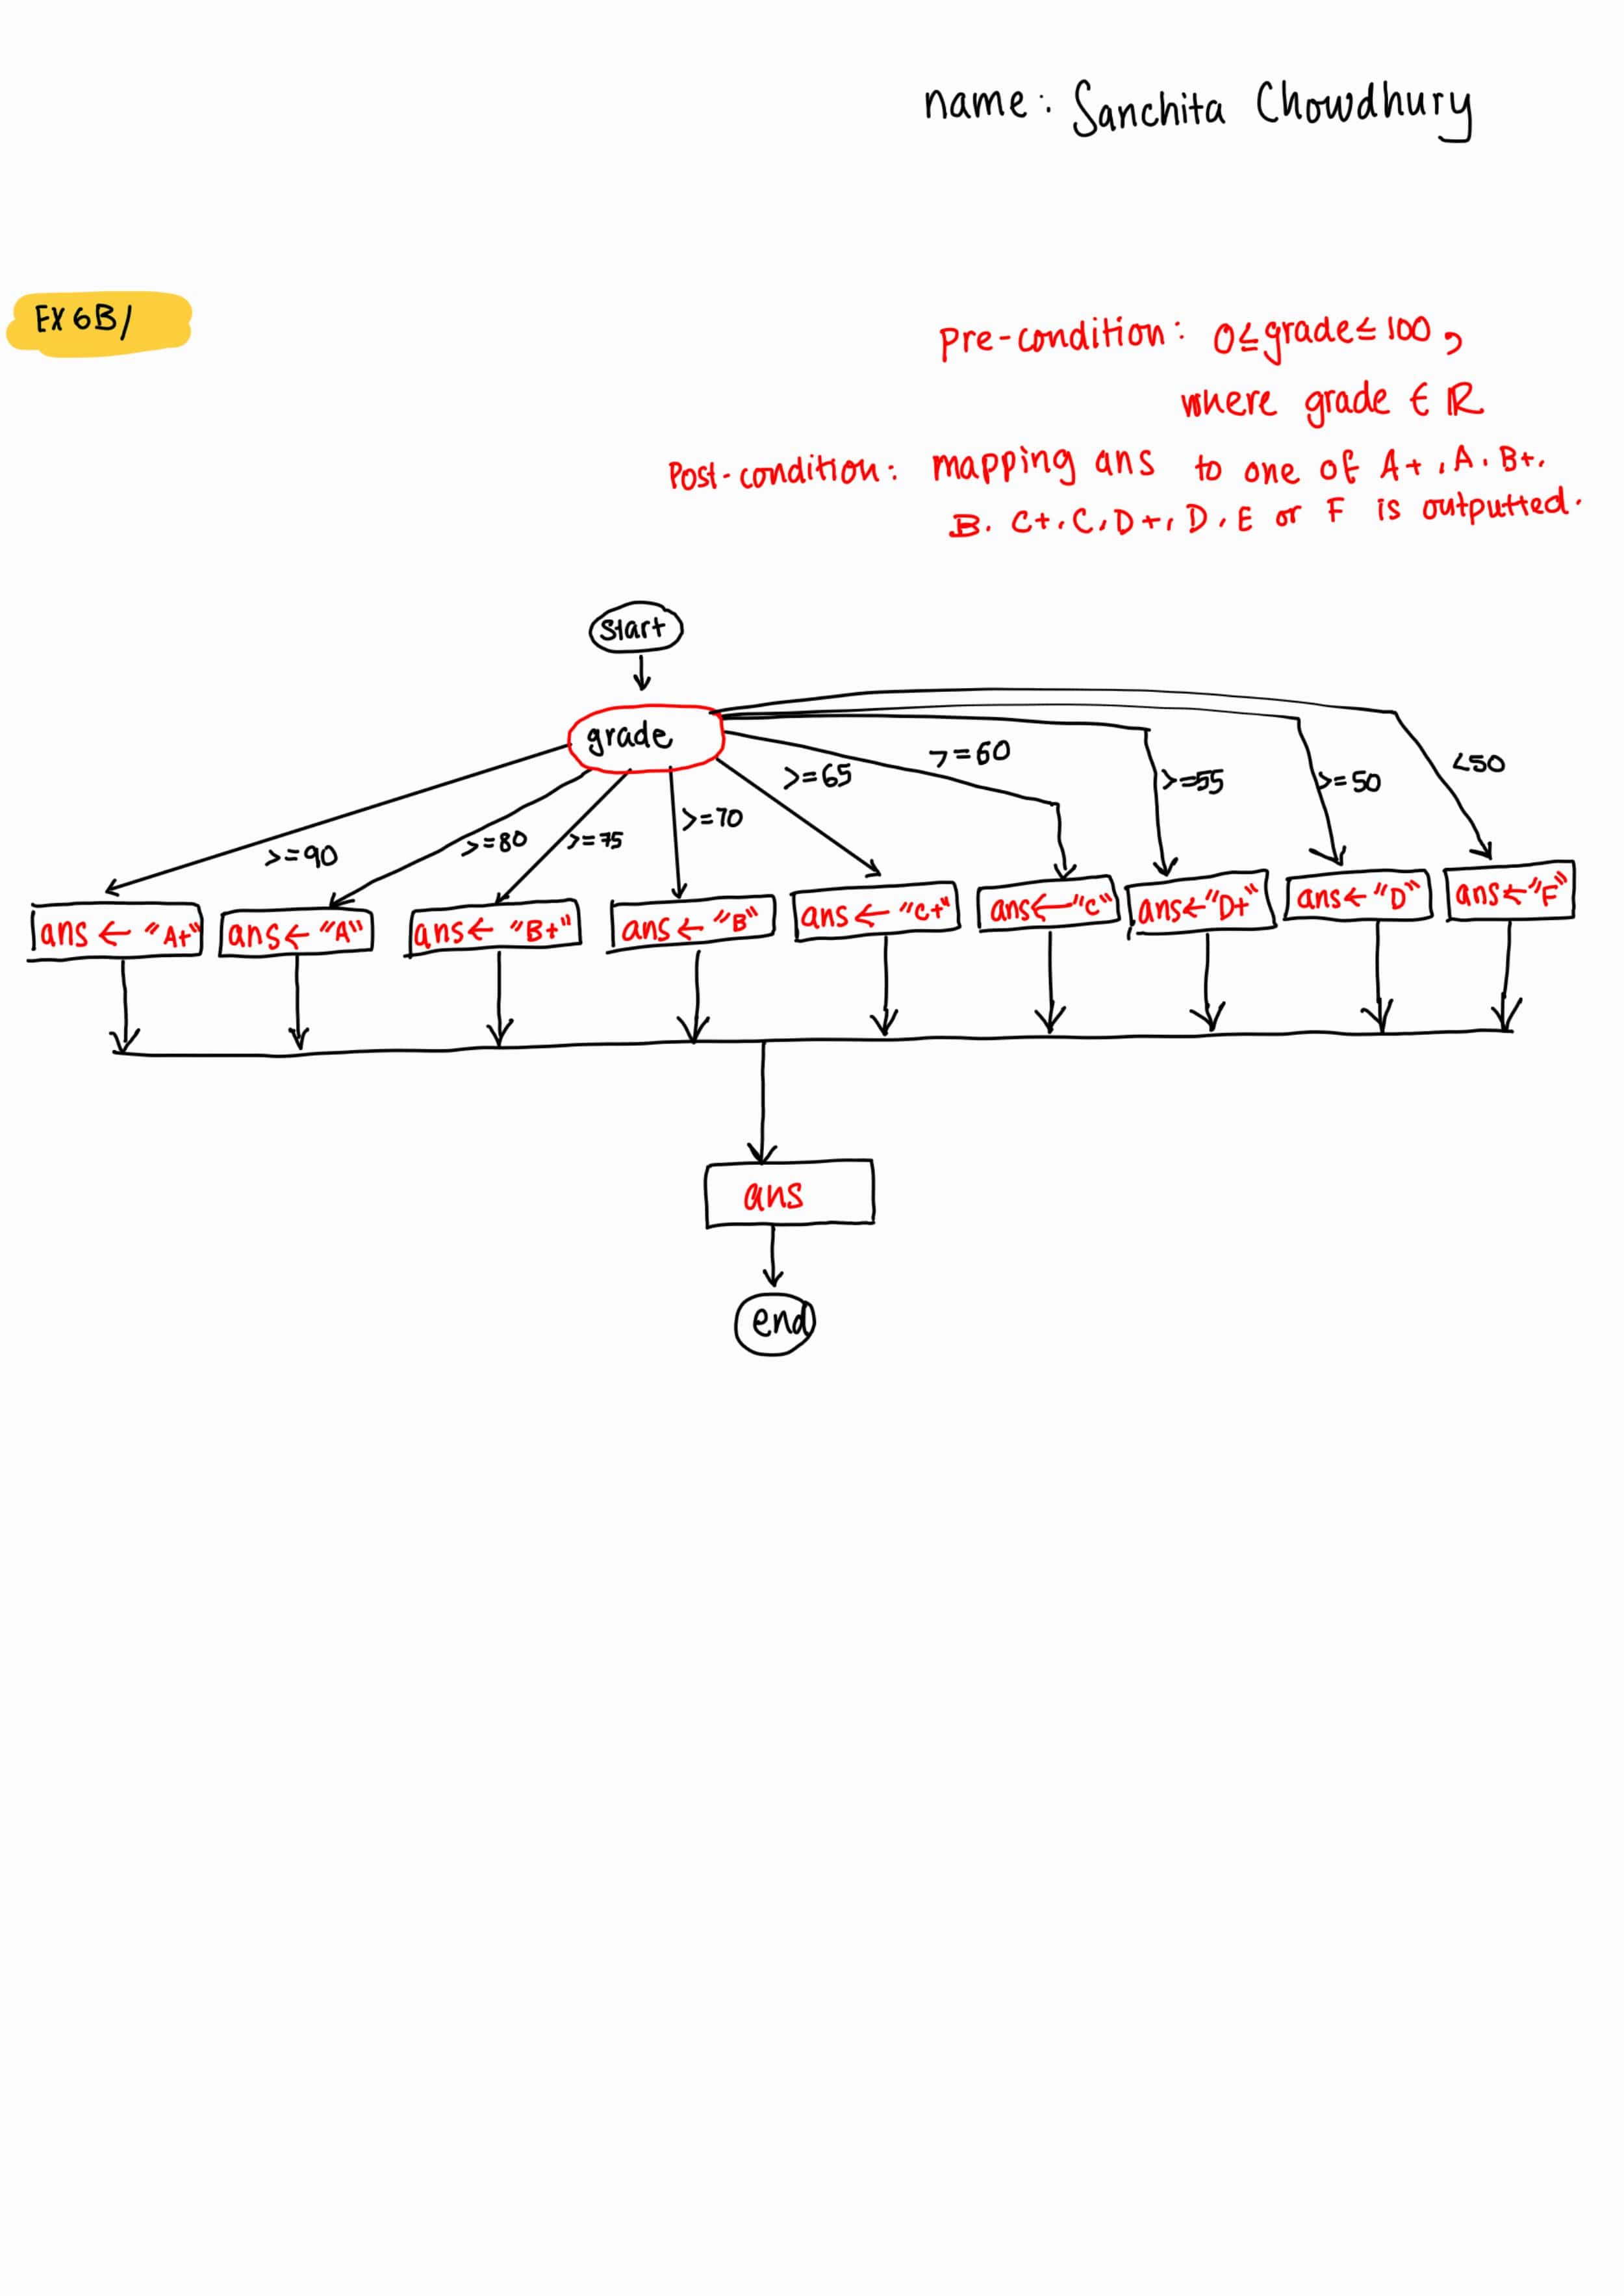 name: Sanchita Chowdhury
EX 6B/
Pre-condition: 0≤grade≤100,
where grade ∈ ℝ
Post-condition: mapping ans to one of A+, A, B+,
B, C+, C, D+, D, E or F is outputted.
start
grade
>=90
>=80
>=75
>=70
>=65
>=60
>=55
>=50
<50
ans ← "A+"
ans ← "A"
ans ← "B+"
ans ← "B"
ans ← "C+"
ans ← "C"
ans ← "D+"
ans ← "D"
ans ← "F"
ans
end